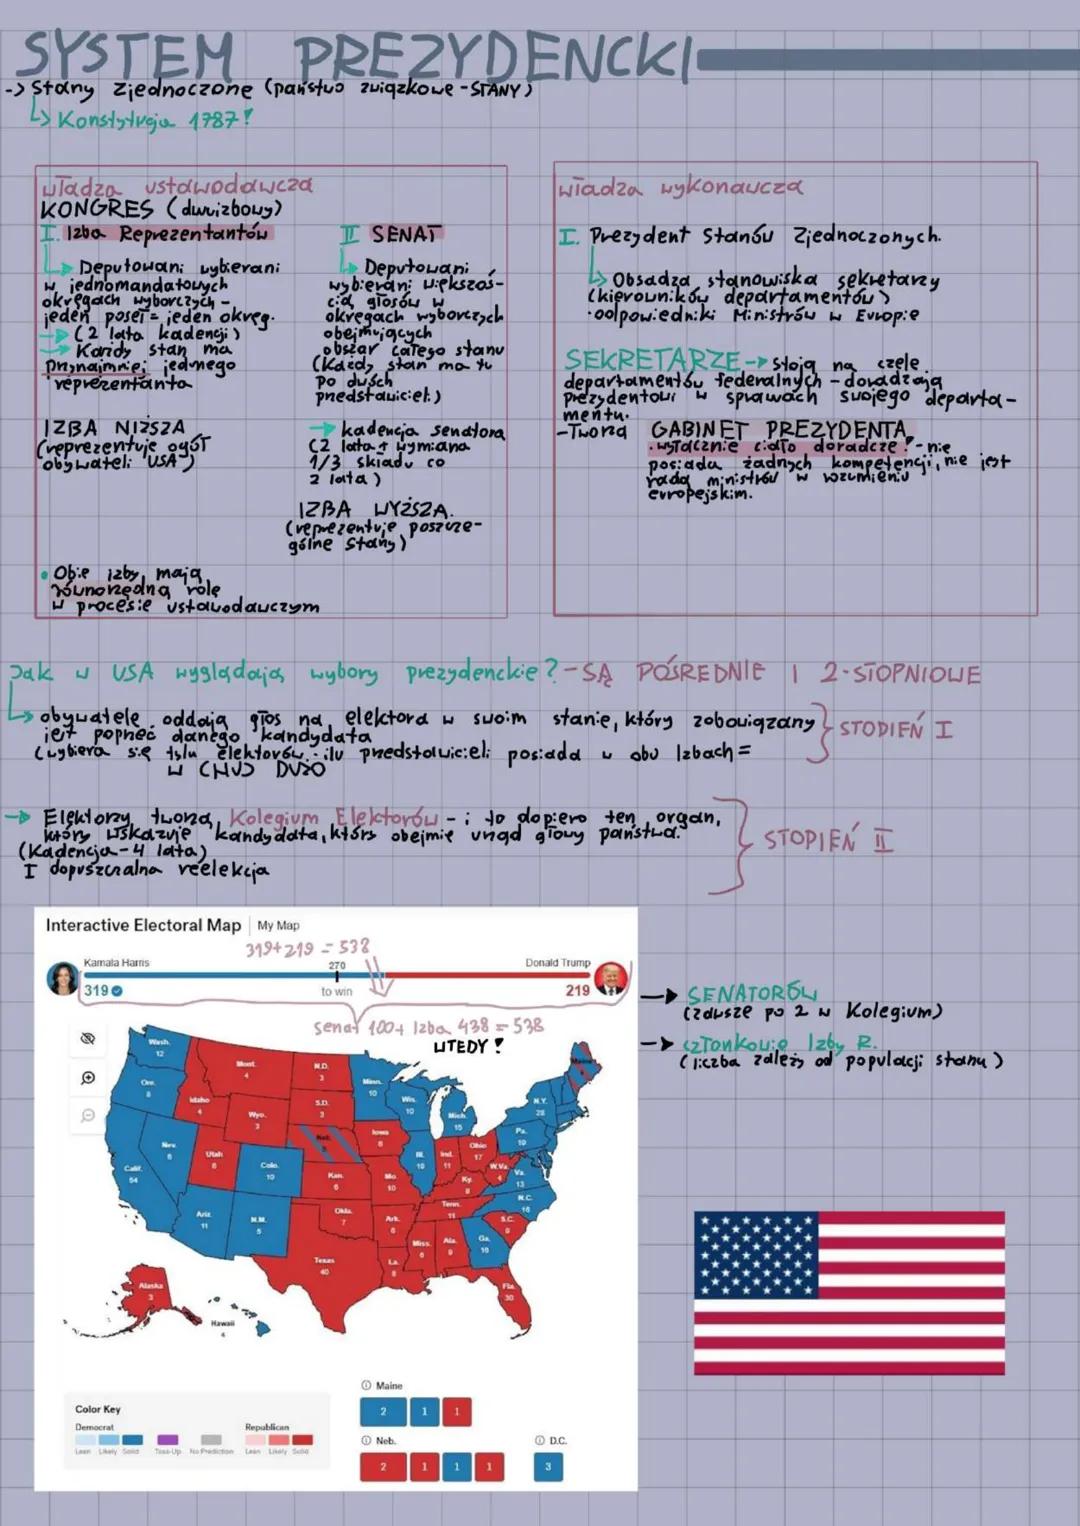 SYSTEM PREZYDENCKI
-> Stany Zjednoczone (państwo związkowe - STANY)
Konstytucja 1787!
władza ustawodawcza
KONGRES (dwuizbowy)
I. Izba Reprezentantów
Deputowani wybierani
w jednomandatowych
okręgach wyborczych -
jeden poseł = jeden okręg.
(2 lata kadencji)
Każdy stan ma
przynajmniej jednego
reprezentanta
IZBA NIŻSZA
(reprezentuje ogół
obywateli USA)
II SENAT
Deputowani
wybierani większoś-
cią głosów w
okręgach wyborczych
obejmujących
obszar całego stanu
(Każdy stan ma tu
po dwóch
przedstawicieli)
kadencja senatora
(2 lata + wymiana
1/3 składu co
2 lata)
IZBA WYŻSZA.
(reprezentuje poszcze-
gólne stany)
• Obie izby mają
równorzędną rolę
w procesie ustawodawczym
władza wykonawcza
I. Prezydent Stanów Zjednoczonych.
Obsadza stanowiska sekretarzy
(kierowników departamentów)
·odpowiedniki Ministrów w Europie
SEKRETARZE -> stoją na czele
departamentów federalnych - doradzają
prezydentowi w sprawach swojego departa-
mentu.
-Tworzą GABINET PREZYDENTA
·wyłącznie ciało doradcze! - nie
posiada żadnych kompetencji, nie jest
radą ministrów w rozumieniu
europejskim.
Jak w USA wyglądają wybory prezydenckie? - SĄ POŚREDNIE I 2-STOPNIOWE
obywatele oddają głos na elektora w swoim stanie, który zobowiązany
jest poprzeć danego kandydata
(wybiera się tylu elektorów - ilu przedstawicieli posiada w obu Izbach =
STOPIEŃ I
-> Elektorzy tworzą Kolegium Elektorów - i to dopiero ten organ,
który wskazuje kandydata, który obejmie urząd głowy państwa.
(Kadencja - 4 lata)
I dopuszczalna reelekcja
STOPIEŃ II
Interactive Electoral Map | My Map
319+219 = 538
Kamala Harris
270
Donald Trump
319
to win
219
Senat 100+ Izba 438 = 538
WTEDY!
-> SENATORÓW
(zawsze po 2 w Kolegium)
-> członkowie Izby R.
(liczba zależy od populacji stanu)
Wash.
12
Ore.
8
Calif.
54
Nev.
6
Idaho
4
Mont.
4
Wyo.
3
Utah
6
Ariz.
11
Colo.
10
N.M.
5
N.D.
3
S.D.
3
Neb.
Kan.
6
Okla.
7
Texas
40
Minn.
10
Iowa
6
Mo.
10
Ark.
6
La.
8
Wis.
10
Ill.
19
Mich.
15
Ind.
11
Ohio
17
Ky.
8
Tenn.
11
Miss.
6
Ala.
9
Ga.
16
Fla.
30
S.C.
9
N.C.
16
Va.
13
W.Va.
4
Pa.
19
N.Y.
28
Maine
Alaska
3
Hawaii
4
Color Key
Democrat
Lean Likely Solid
Toss-Up
No Prediction
Republican
Lean Likely Solid
Maine
2 1 1
Neb.
2 1 1 1
D.C.
3